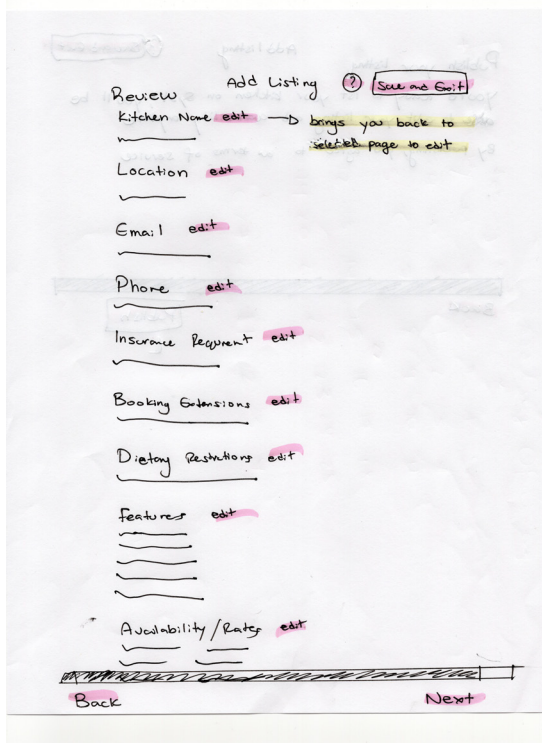 Add Listing ? Save and Exit
Review
Kitchen Name edit → brings you back to
selected page to edit
Location edit
Email edit
Phone edit
Insurance Requrent edit
Booking Extensions edit
Dietary Restrictions edit
Features edit
Availability / Rates edit
Back Next